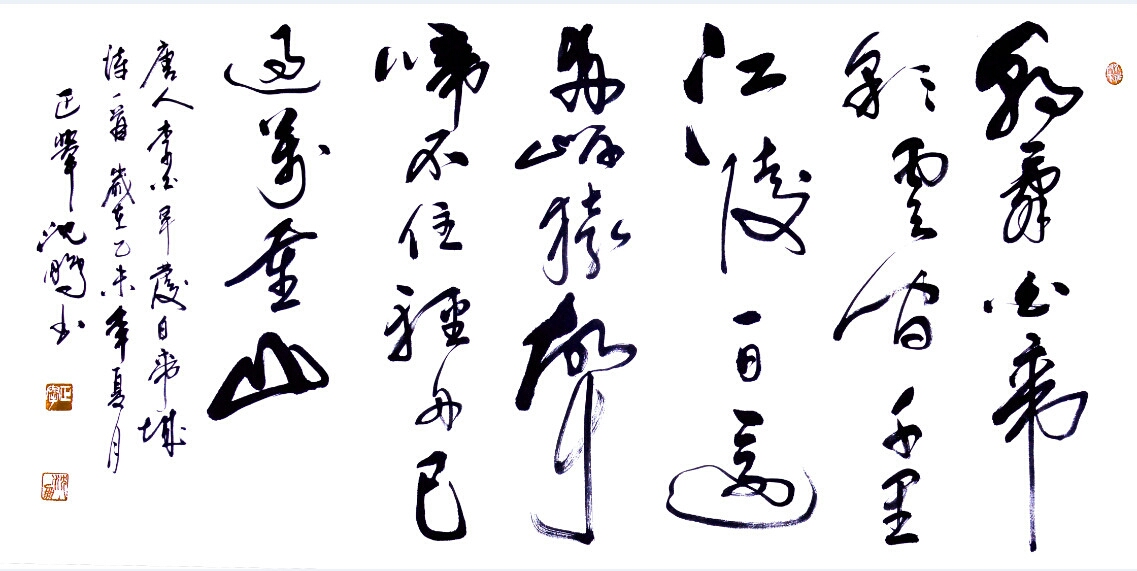 朝辭白帝
彩雲间千里
江陵一日還
兩岸猿聲
啼不住輕舟已
過萬重山
唐人李白早發白帝城
詩一首歲在乙未年夏月
正舉沈鵬书